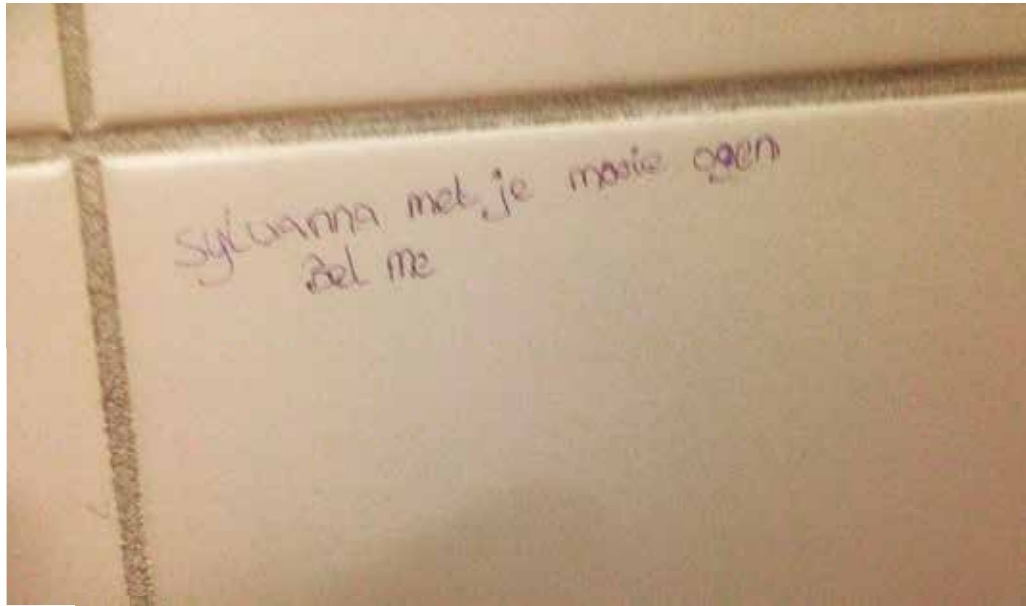 Sylvanna met je mooie ogen
Bel me